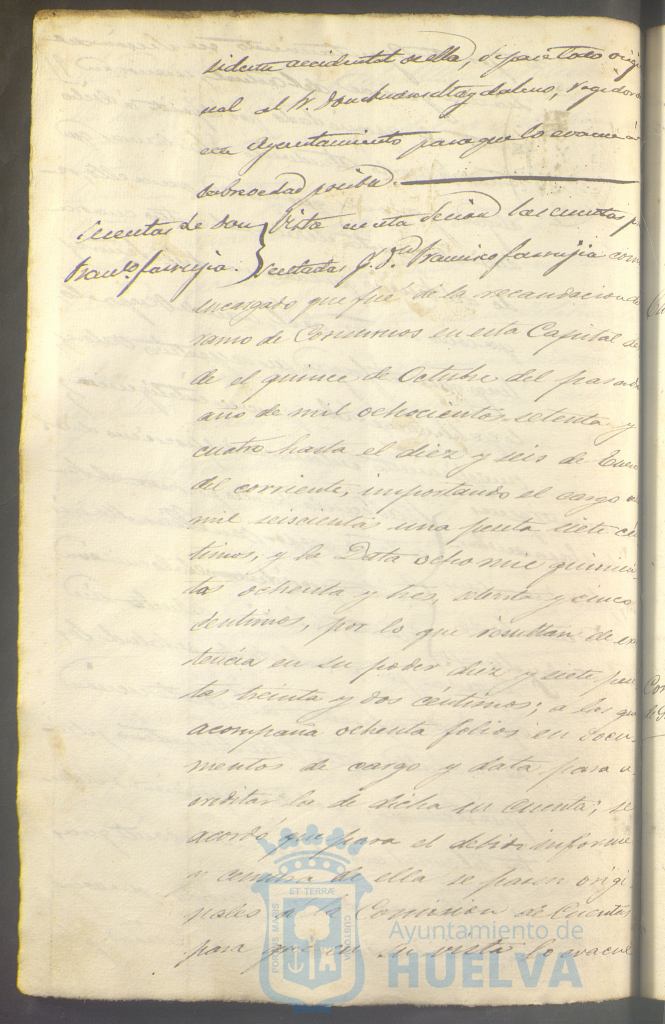 sidente accidental de ella, se pase todo origi
nal al Sr. Don
este Ayuntamiento para que lo evacue á
la brevedad posible.
Cuentas de Don
Franco. Farrujia.
Vista en esta sesion las cuentas p
sentadas Francisco Farrujia como
encargado que fué de la recaudacion de
ramo de Consumos en esta Capital des
de el quince de Octubre del pasado
año de mil ochocientos setenta y
cuatro hasta el diez y seis de Enero
del corriente, importando el cargo
mil seiscientas una peseta siete cén
timos, y la Data ocho mil quinien
tas ochenta y tres, setenta y cinco
centimos, por lo que resultan de exis
tencia en su poder diez y siete pese
tas treinta y dos céntimos; a las que
acompaña ochenta folios en Docu-
mentos de cargo y data para a-
creditar la de dicha su cuenta; se
acordó, que para el debido informe
y censura de ella se pasen origi
nales á la Comision de Cuentas
para que en su vista lo evacue
ET TERRÆ
PORTUS MARIS
CUSTODIA
Ayuntamiento de
HUELVA